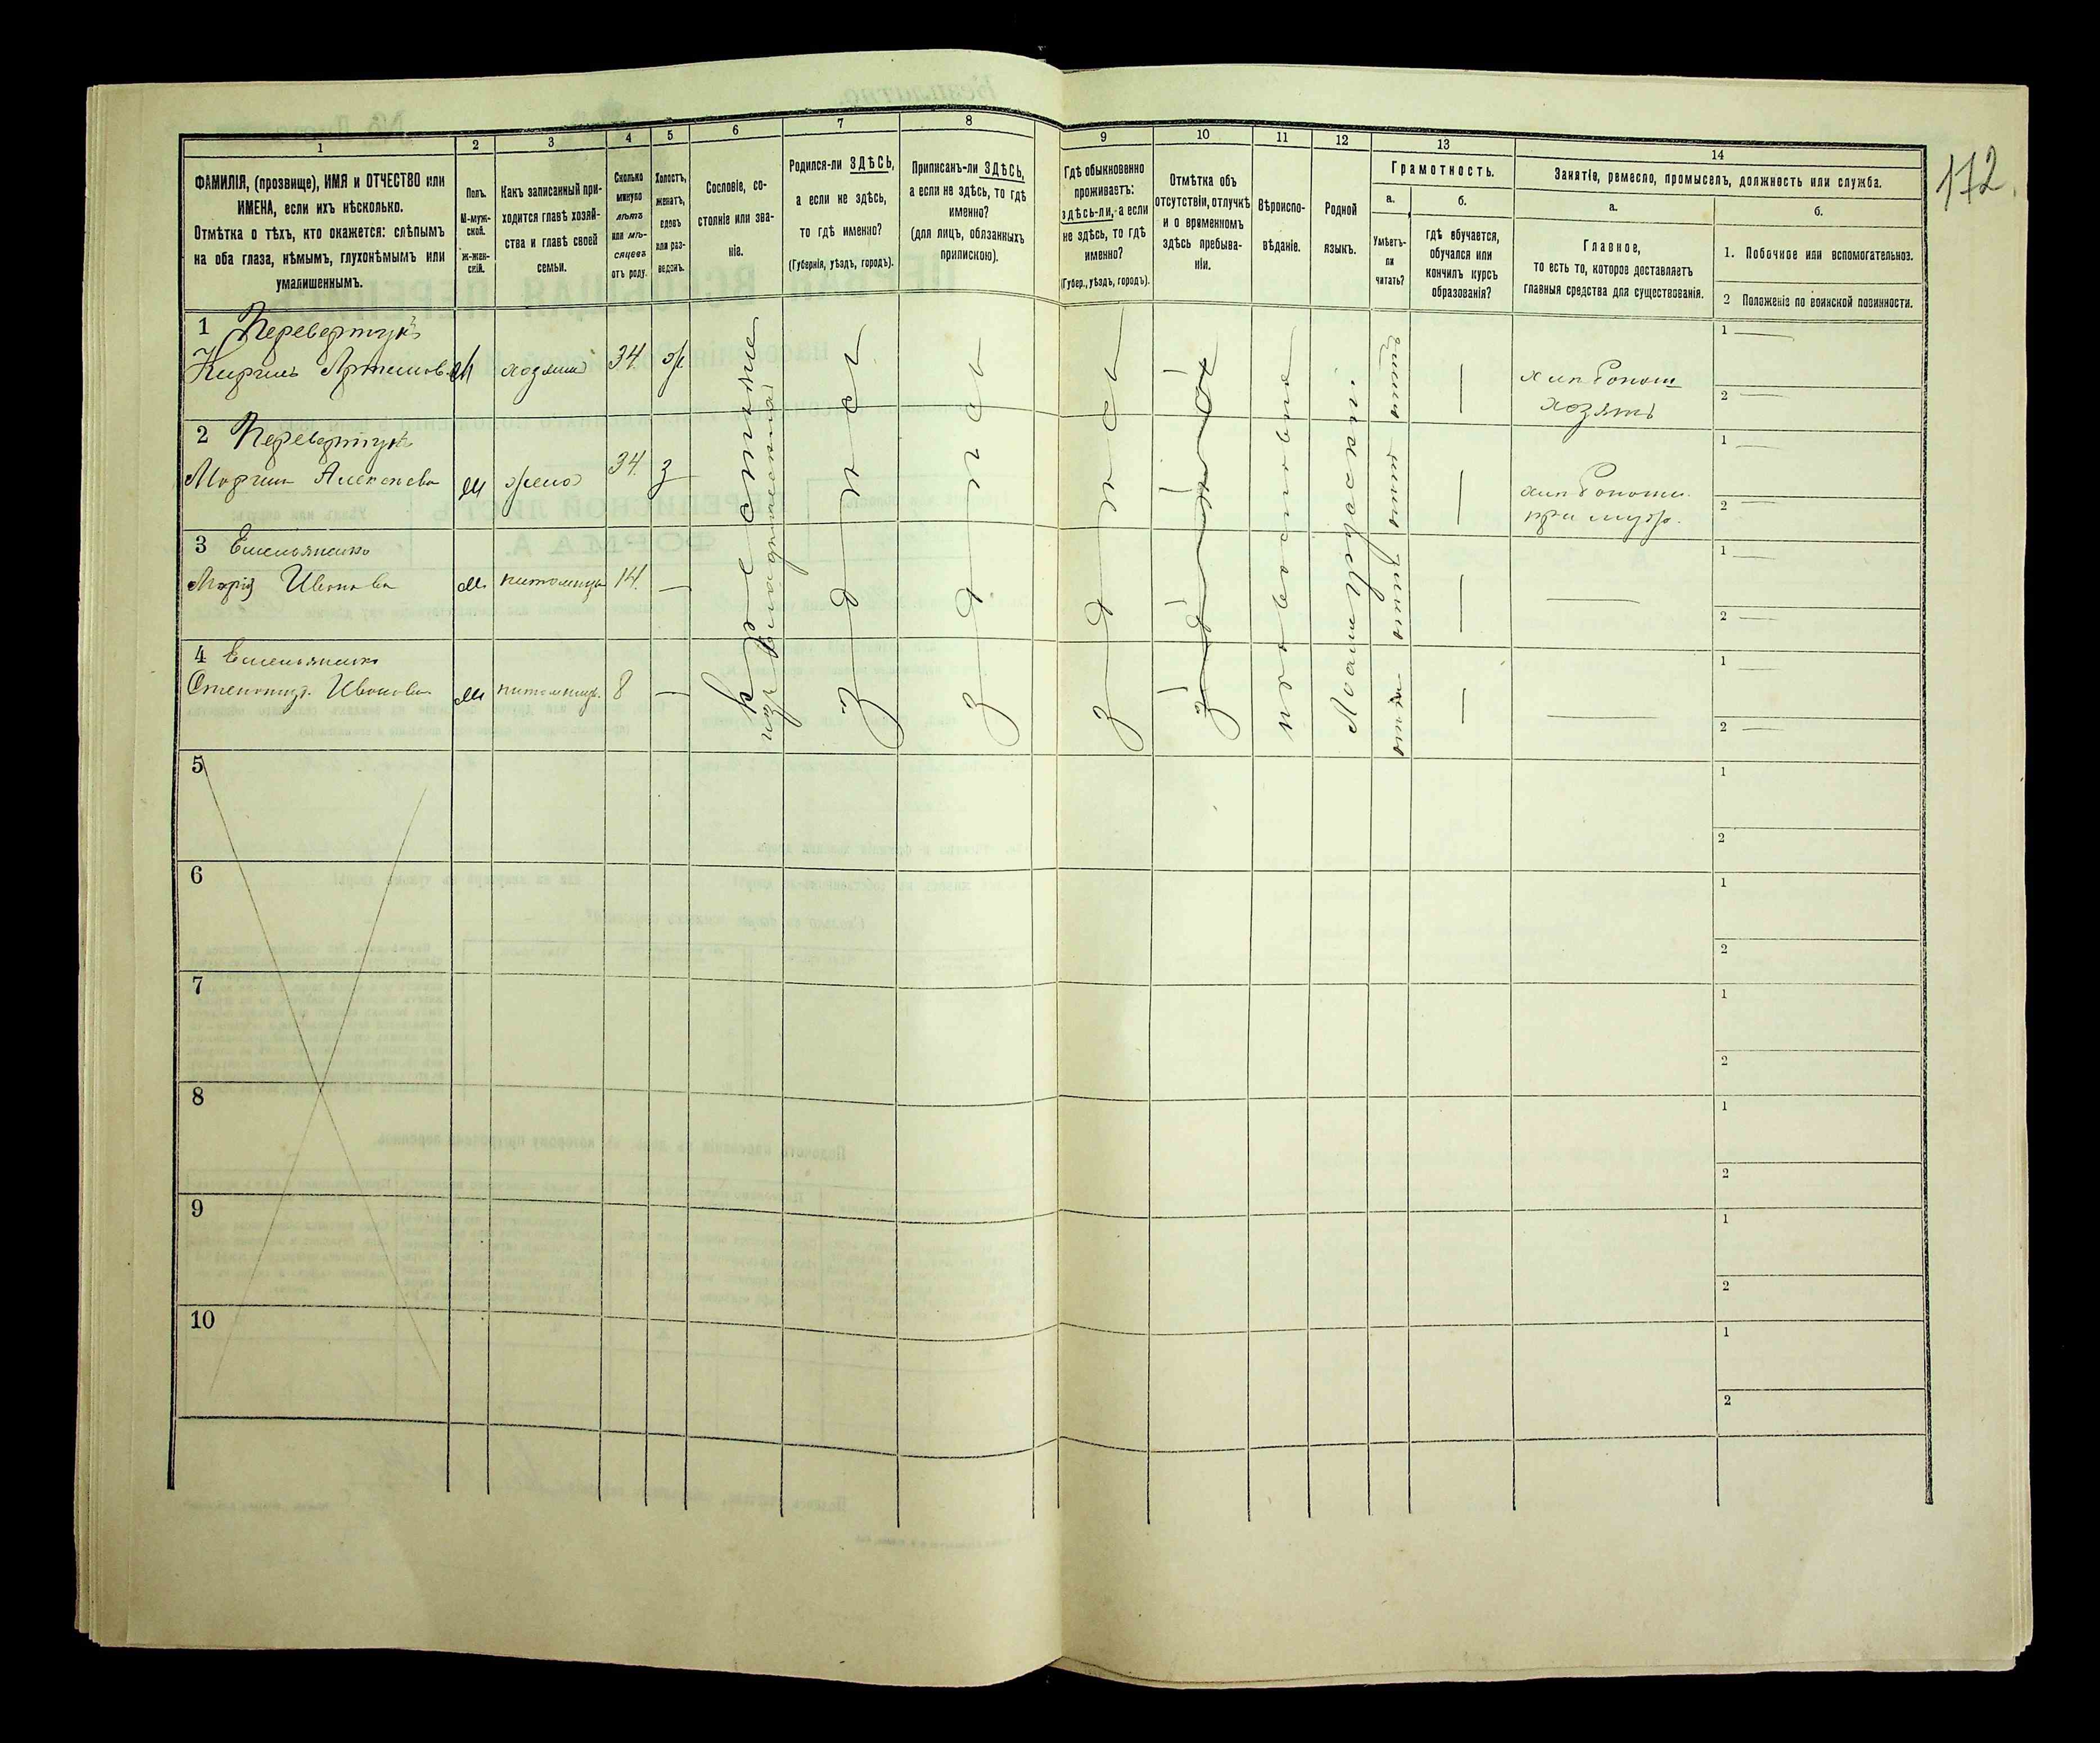 172.
1 2 3 4 5 6 7 8 9 10 11 12 13 14
ФАМИЛІЯ, (прозвище), ИМЯ и ОТЧЕСТВО или
ИМЕНА, если ихъ нѣсколько.
Отмѣтка о тѣхъ, кто окажется: слѣпымъ
на оба глаза, нѣмымъ, глухонѣмымъ или
умалишеннымъ.
Полъ.
М-муж-
ской.
Ж-жен-
скій.
Какъ записанный при-
ходится главѣ хозяй-
ства и главѣ своей
семьи.
Сколько
минуло
лѣтъ
или мѣ-
сяцевъ
отъ роду.
Холостъ,
женатъ,
вдовъ
или раз-
веденъ.
Сословіе, со-
стояніе или зва-
ніе.
Родился-ли ЗДѢСЬ,
а если не здѣсь,
то гдѣ именно?
(Губернія, уѣздъ, городъ).
Приписанъ-ли ЗДѢСЬ,
а если не здѣсь, то гдѣ
именно?
(для лицъ, обязанныхъ
припискою).
Гдѣ обыкновенно
проживаетъ:
здѣсь-ли, а если
не здѣсь, то гдѣ
именно?
(Губер., уѣздъ, городъ).
Отмѣтка объ
отсутствіи, отлучкѣ
и о временномъ
здѣсь пребыва-
ніи.
Вѣроиспо-
вѣданіе.
Родной
языкъ.
Грамотность.
а.
Умѣетъ-
ли
читать?
б.
гдѣ обучается,
обучался или
кончилъ курсъ
образованія?
Занятіе, ремесло, промыселъ, должность или служба.
а.
Главное,
то есть то, которое доставляетъ
главныя средства для существованія.
б.
1. Побочное или вспомогательное.
2 Положеніе по воинской повинности.
1 Перевертунъ
Кирилъ Артемов. М хозяин 34. ж
хлебопаш
хозяинъ
1 —
2 —
2 Перевертунъ
Марина Алексѣева жена 34. з
хлебопаш.
при муж.
1 —
2 —
3 Емельяненко
Марія Иванова питомица 14. —
1 —
2 —
4 Емельяненко
Степанид. Иванова питомица. 8 —
1 —
2 —
крестьяне
изъ владѣльческихъ
здѣсь
здѣсь
здѣсь
православные
Малорусскій
5
1
2
6
1
2
7
1
2
8
1
2
9
1
2
10
1
2